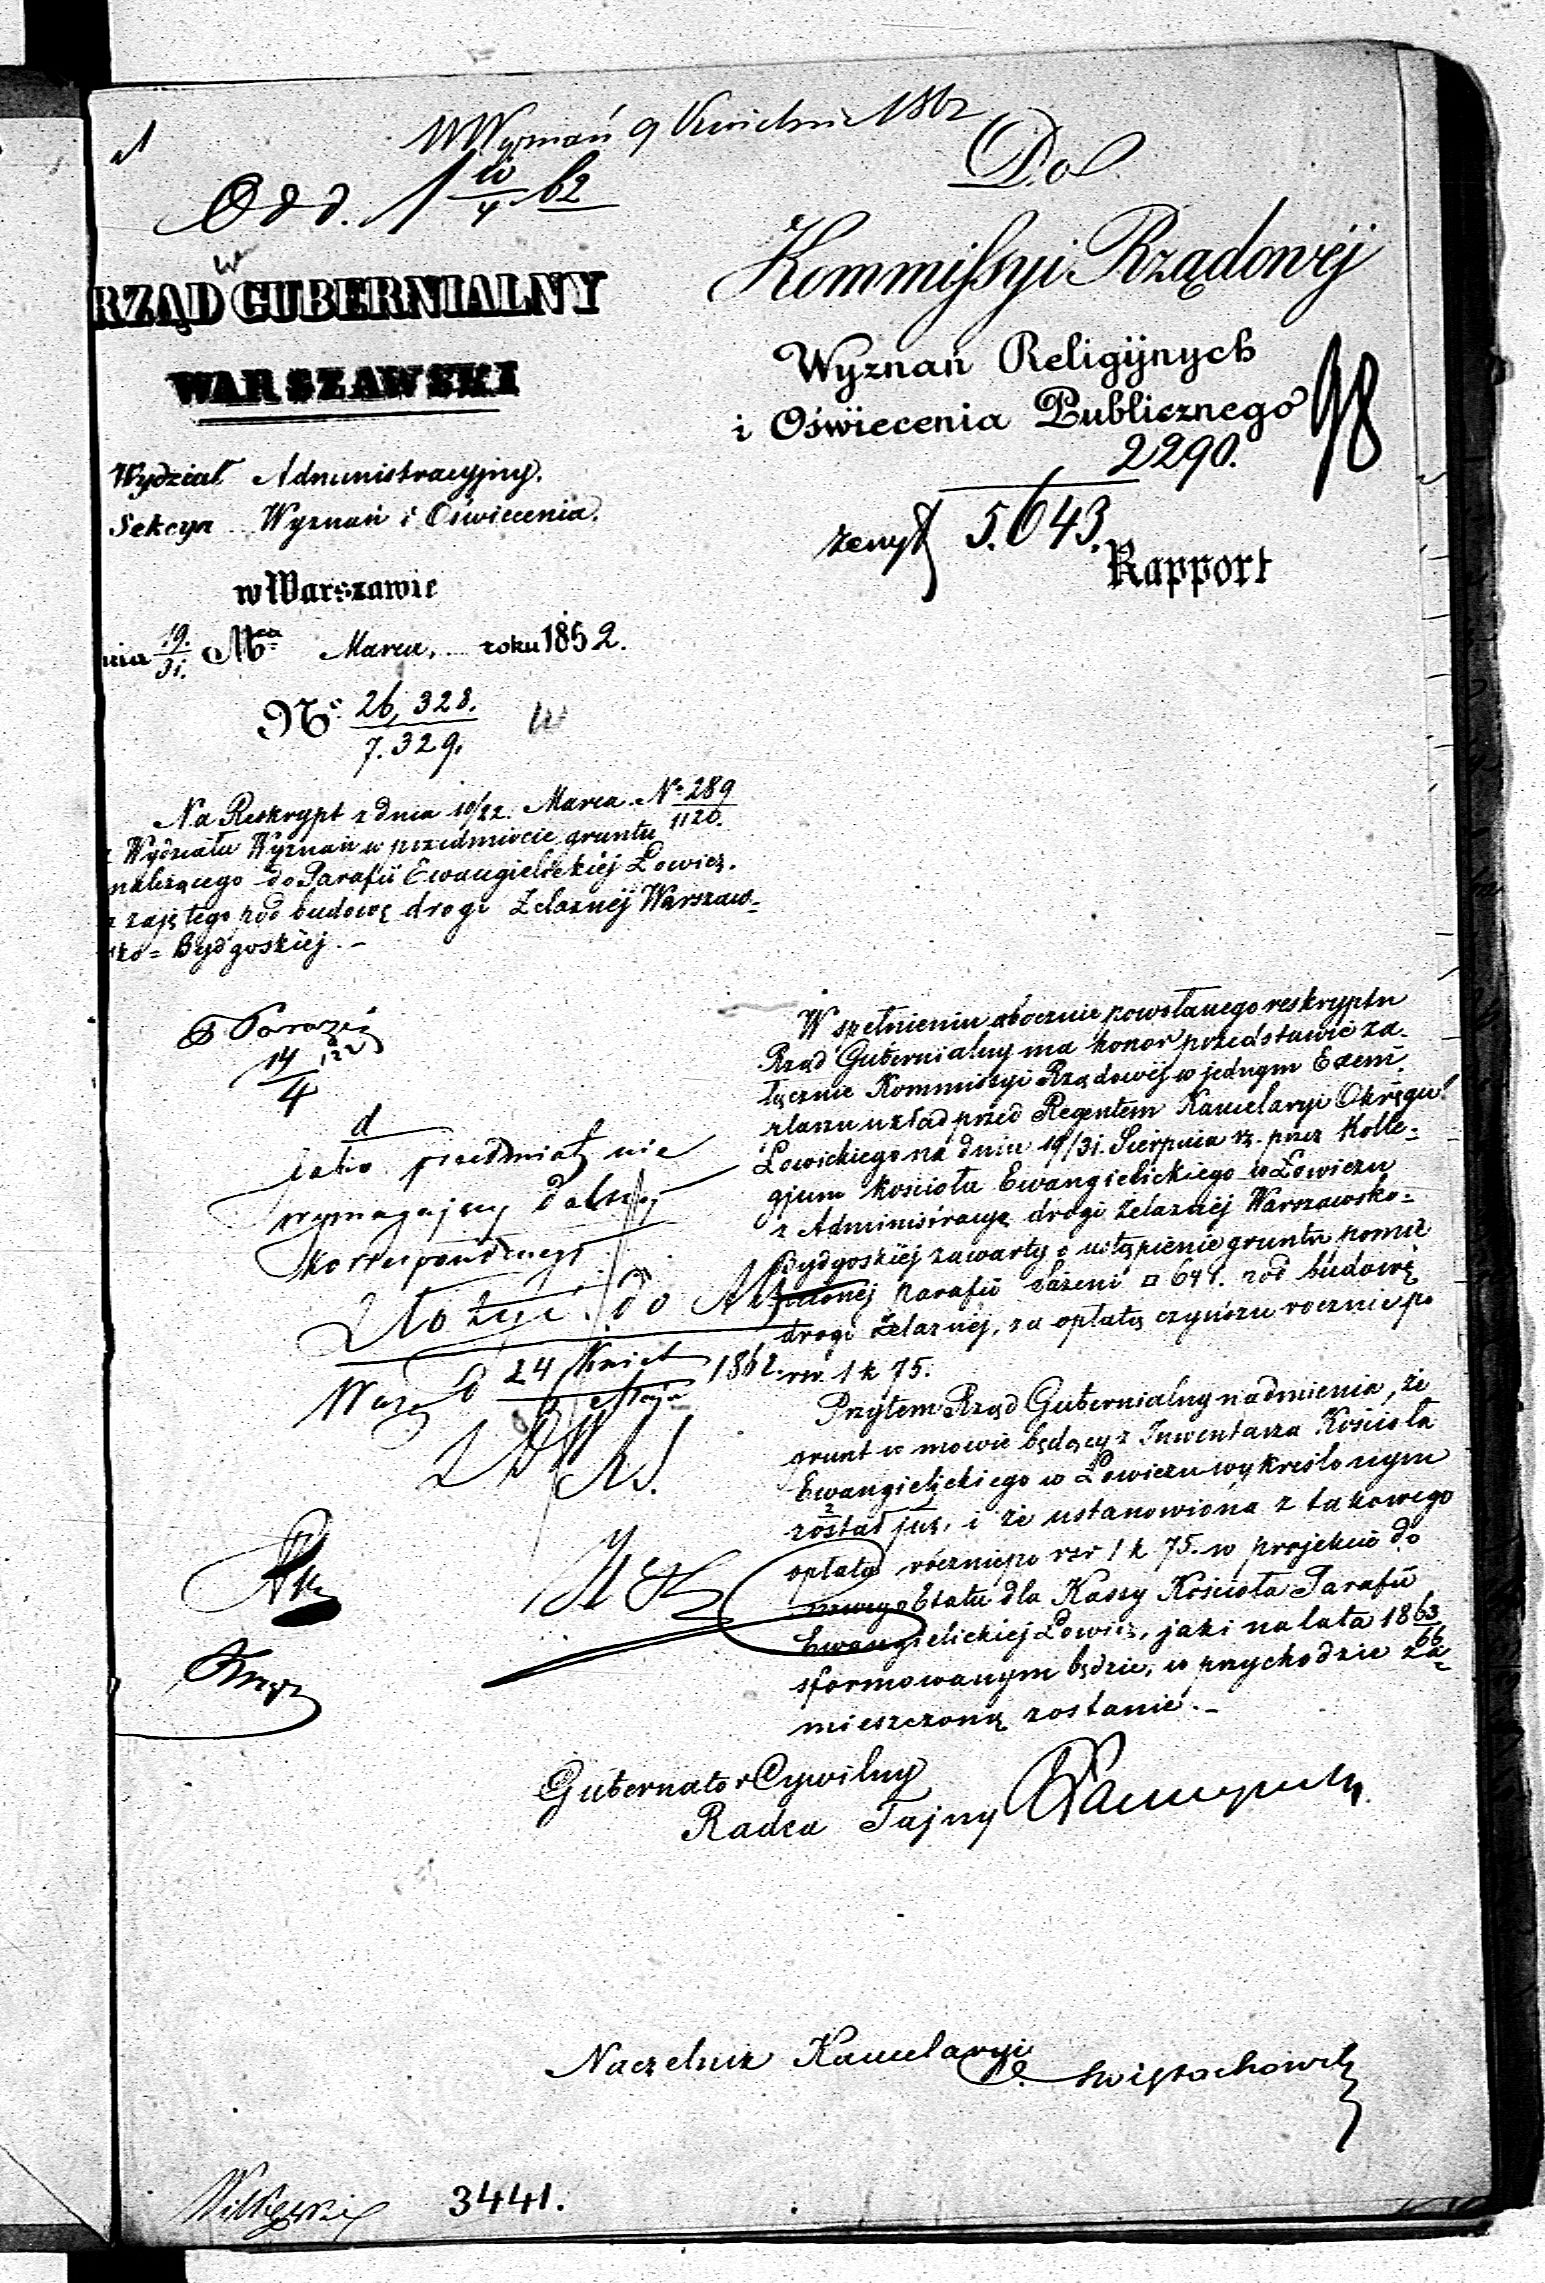 W Wyznań 9 Kwietnia 1862
Odd. 1 10/4 62
RZĄD GUBERNIALNY
WARSZAWSKI
Wydział Administracyjny.
Sekcya Wyznań i Oświecenia.
w Warszawie
nia 19./31. Mca Marca, roku 1862.
No 26,328./7.329.
Na Reskrypt z dnia 10/22. Marca No 289/1120.
z Wydziału Wyznań w przedmiocie gruntu
należącego do Parafii Ewangielickiéj Łowicz.
zajętego pod budowę drogi Żelaznéj Warszaw-
sko-Bydgoskiéj.-
14/4
d
jako przedmiot nie
wymagający dalszéj
korrespondencyi
Złożyć do Akt
Warsz. d 24 Kwiet/6 Maja 1862.
Do
Kommissyi Rządowéj
Wyznań Religijnych
i Oświecenia Publicznego
98
2290.
5.643.
Rapport
W spełnieniu obocznie powołanego reskryptu
Rząd Gubernialny ma honor przedstawić za-
łącznie Kommissyi Rządowéj w jednym Exem-
plarzu układ przed Regentem Kancelaryi Okręgu
Łowickiego na dniu 19/31. Sierpnia rz. przez Kolle-
gjum kościoła Ewangielickiego w Łowiczu
z Administracyą drogi żelaznéj Warszawsko-
Bydgoskiéj zawarty o ustąpienie gruntu pomie
nionéj parafii sążeni □ 641. pod budowę
drogi Żelaznéj, za opłatą czynszu rocznie po
rsr. 1 k 75.
Przytem Rząd Gubernialny nadmienia, że
grunt w mowie będący z Inwentarza Kościoła
Ewangielickiego w Łowiczu wykreślonym
został już, i że ustanowiona z takowego
opłata rocznie po rsr 1 k 75. w projekcie do
nowego Etatu dla Kassy Kościoła Parafii
Ewangielickiej Łowicz, jaki na lata 1863/66
sformowanym będzie, w przychodzie za-
mieszczoną zostanie.-
Gubernator Cywilny
Radca Tajny
Naczelnik Kancelaryi
3441.